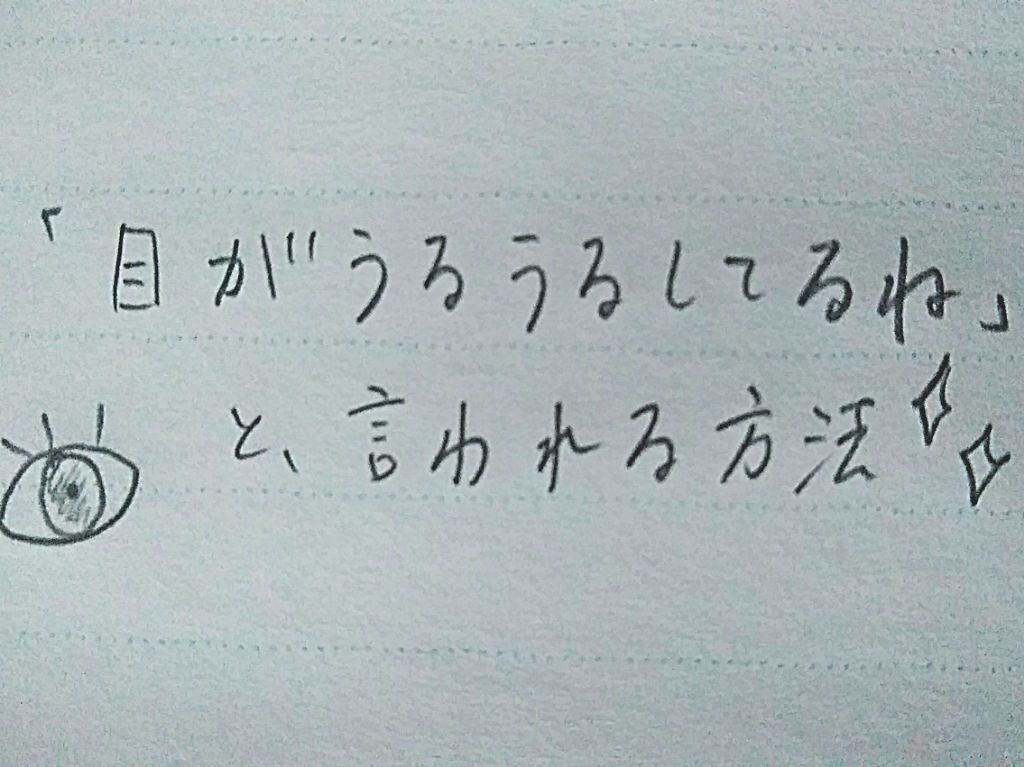 「目がうるうるしてるね」
と、言われる方法